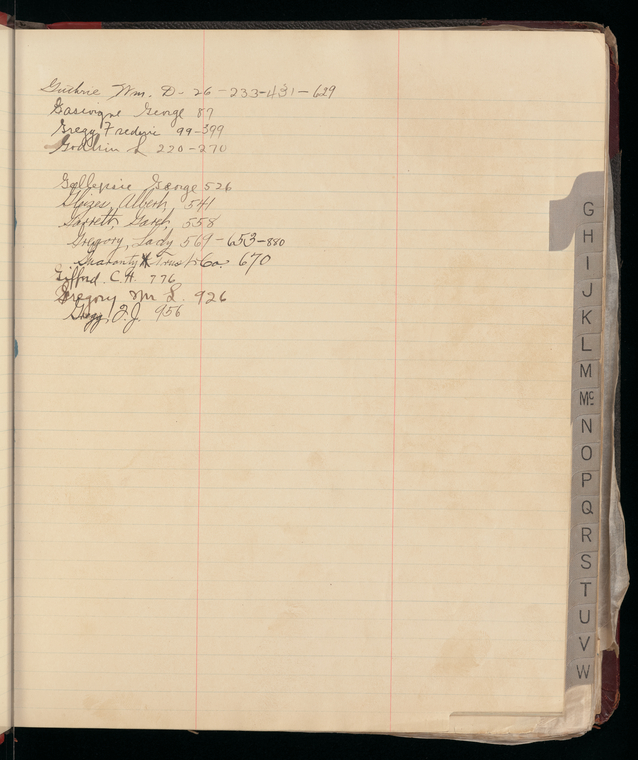 Guthrie, Wm. D - 26 - 233 - 431 - 629
Gascoyne George 87
Gregg Frederic 99 - 399
Goodwin L 220 - 270
Gellepsie George 526
Albert, 541
Garrett, Garet, 558
Gregory, Lady 569 - 653 - 880
Guaranty Trust Co. 670
Gifford. C.H. 776
Gregory Wm L. 926
Gregg, F.J. 956
G
H
I
J
K
L
M
Mc
N
O
P
Q
R
S
T
U
V
W